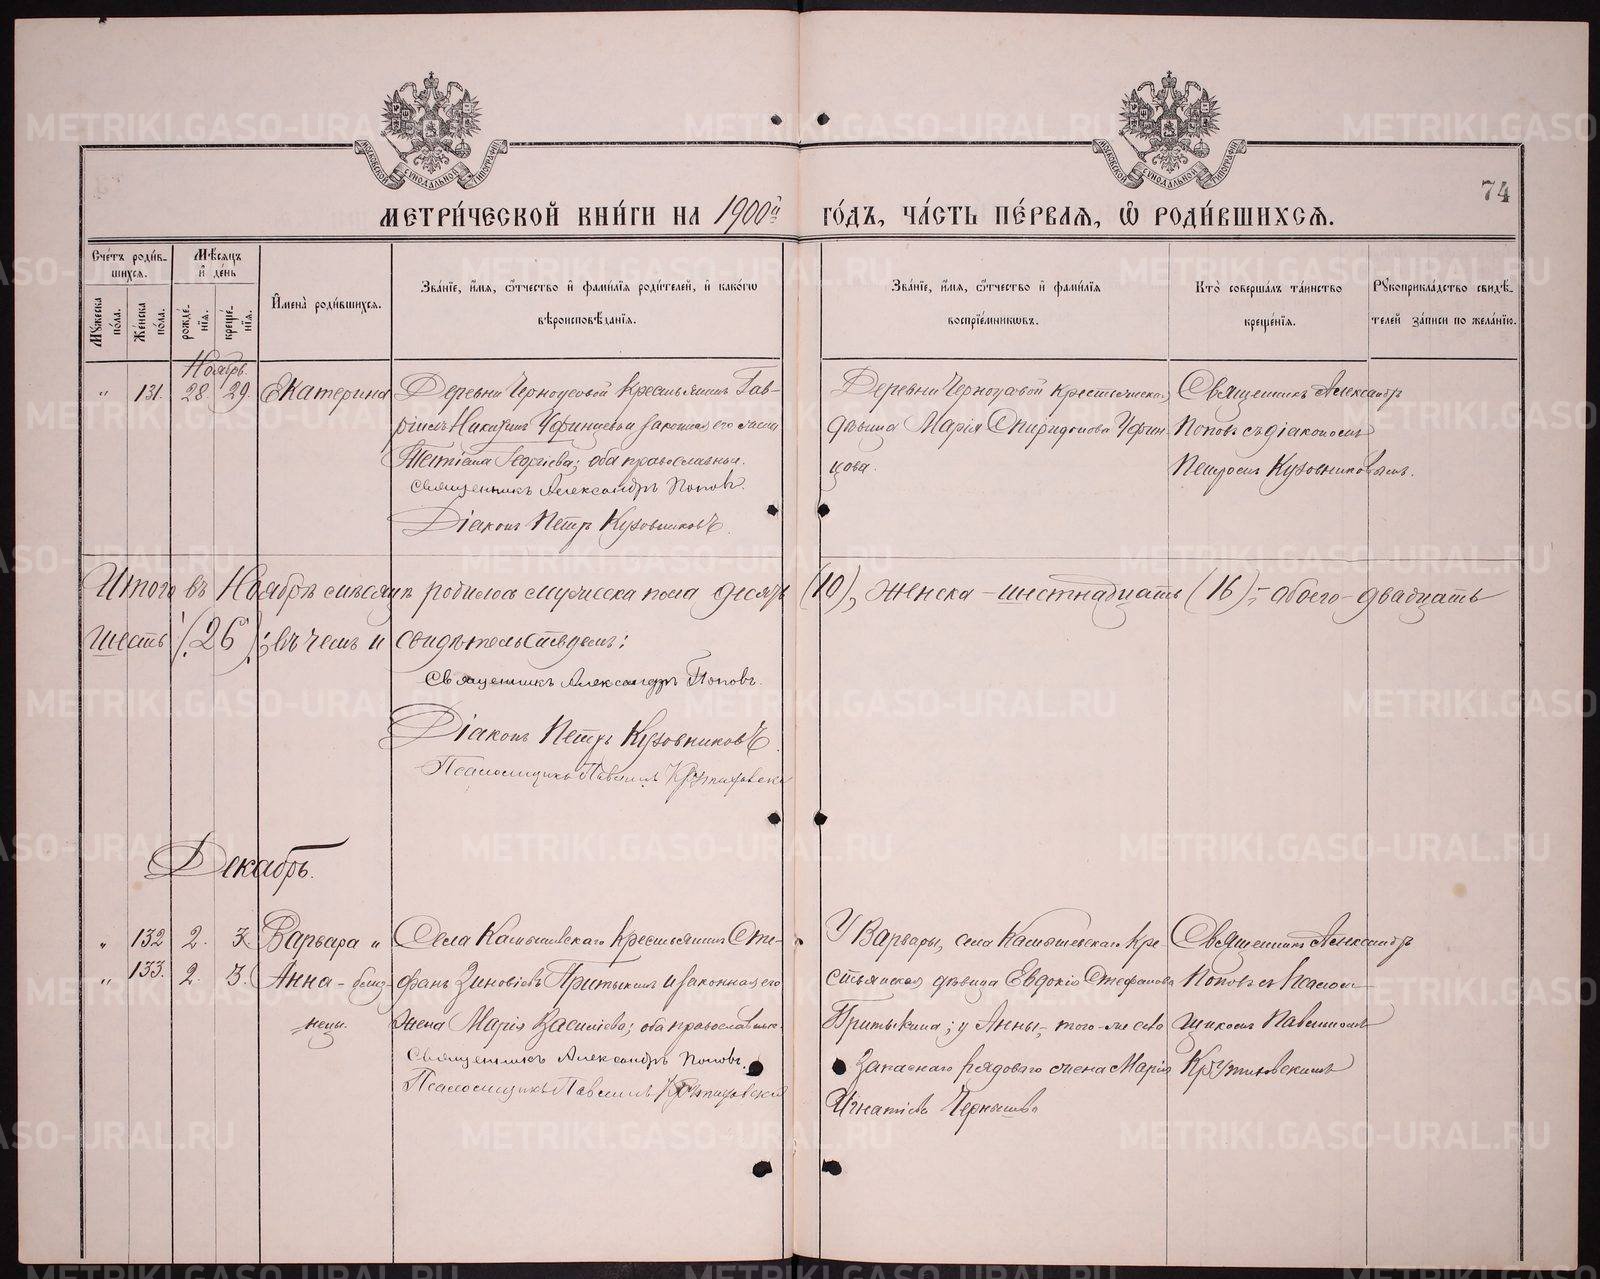 74
МЕТРИ́ЧЕСКОЙ КНИ́ГИ НА 1900й ГО́ДЪ, ЧА́СТЬ ПЕ́РВАЯ, Ѽ РОДИ́ВШИХСЯ.
Сче́тъ роди́вшихся.
Мꙋ́жеска по́ла.
Же́нска по́ла.
Мѣ́сяцъ и де́нь
рожде́нїя.
креще́нїя.
Имена̀ роди́вшихся.
Зва́нїе, и́мя, ѻ́тчество и фами́лїя роди́телей, и како́гѡ вѣроисповѣ́данїя.
Зва́нїе, и́мя, ѻ́тчество и фами́лїя воспрїе́мникѡвъ.
Кто̀ соверша́лъ та́инство креще́нїя.
Рꙋкоприкла́дство свидѣ́телей за́писи по жела́нїю.
Ноябрь.
" 131. 28 29. Екатерина
Деревни Черноусовой крестьянинъ Гав-
рiилъ Никитинъ Уфинцевъ и законная его жена
Георгiева; оба православные.
Священникъ Александръ Поповъ.
Дiаконъ Петръ Кузовниковъ.
Деревни Черноусовой крестьянская
дѣвица Марiя Спиридонова Уфин-
цова.
Священникъ Александръ
Поповъ съ дiакономъ
Петромъ Кузовниковымъ.
Итого въ Ноябрѣ мѣсяцѣ родилось мужеска пола десять (10), женска - шестнадцать (16); - обоего - двадцать
шесть (26); въ чемъ и свидѣтельствуемъ:
Священникъ Александръ Поповъ.
Дiаконъ Петръ Кузовниковъ
Псаломщикъ
Декабрь.
" 132 2. 3. Варвара и
" 133. 2. 3. Анна - близ-
нецы.
Села Камышевскаго крестьянинъ Сте-
фанъ Зиновiевъ Притыкинъ и законная его
жена Марiя Василiева; оба православные.
Священникъ Александръ Поповъ.
Псаломщикъ
У Варвары, села Камышевскаго кре-
стьянская дѣвица Евдокiя Стефанова
Притыкина; у Анны, - того-же села
запаснаго рядового жена Марiя
Игнатiева Чернышева
Священникъ Александръ
Поповъ съ псалом-
щикомъ
METRIKI.GASO-URAL.RU